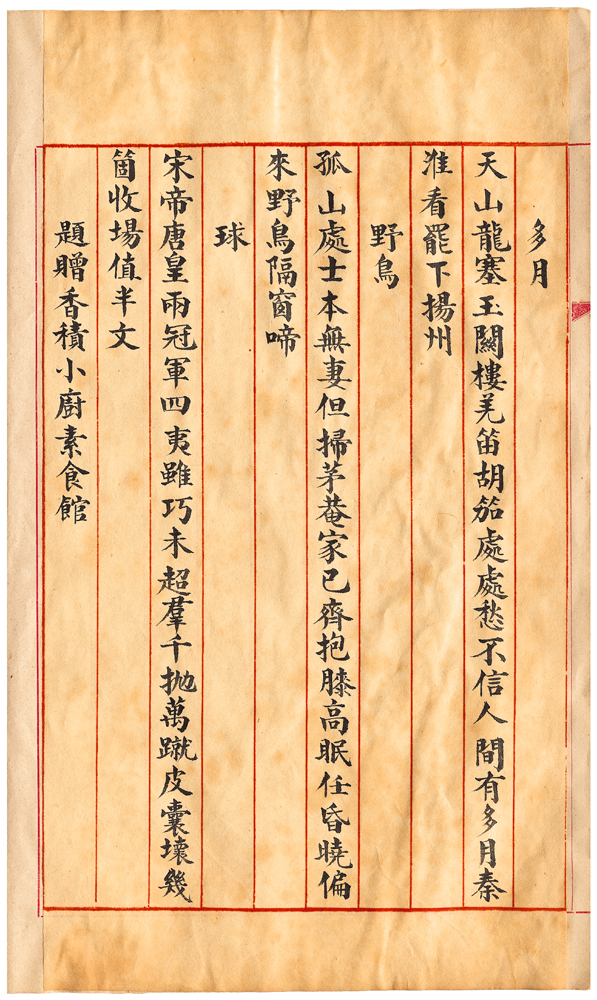 多月
天山龍塞玉關樓羌笛胡笳處處愁不信人間有多月秦
淮看罷下揚州
野鳥
孤山處士本無妻但掃茅菴家已齊抱膝高眠任昏曉偏
來野鳥隔窗啼
球
宋帝唐皇兩冠軍四夷雖巧未超羣千拋萬蹴皮囊壞幾
箇收場值半文
題贈香積小廚素食館